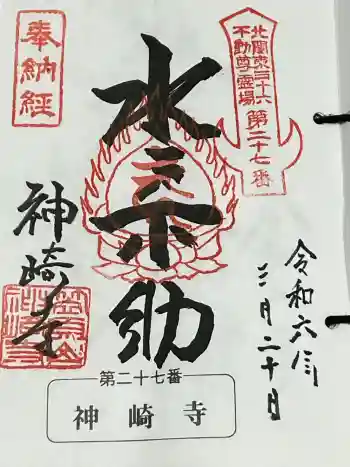 北関東三十六
不動尊霊場
第二十七番
奉納経
令和六年
三月二十日
水子不助
神崎寺
第二十七番
神崎寺